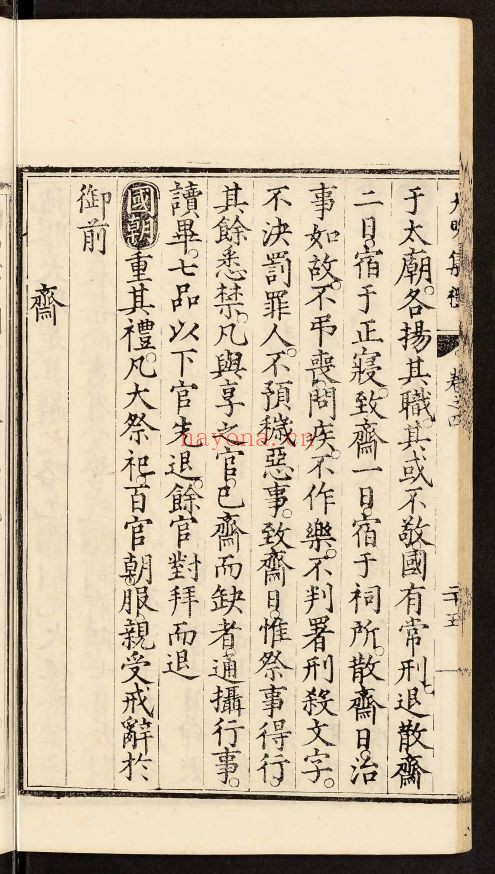 大明集禮 卷之四 二十五
于太廟各揚其職其或不敬國有常刑退散齋
二日宿于正寢致齋一日宿于祠所散齋日治
事如故不弔喪問疾不作樂不判署刑殺文字
不決罰罪人不預穢惡事致齋日惟祭事得行
其餘悉禁凡與享之官已齋而缺者通攝行事
讀畢七品以下官先退餘官對拜而退
國朝重其禮凡大祭祀百官朝服親受戒辭於
御前
齋
nayona.cn